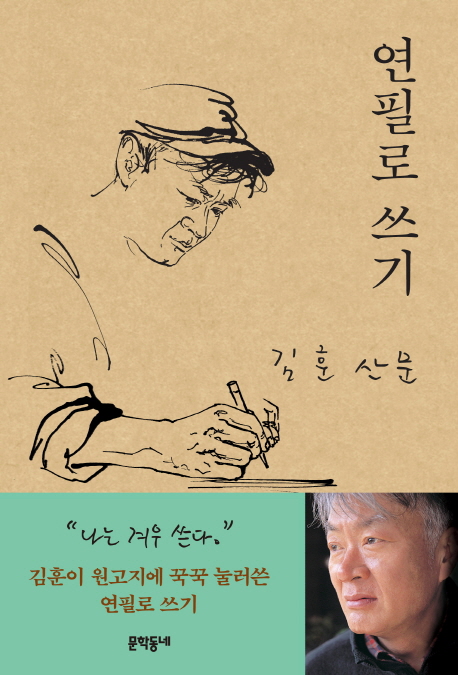 연필로 쓰기
김훈 산문
“나는 겨우 쓴다.”
김훈이 원고지에 꾹꾹 눌러쓴
연필로 쓰기
문학동네